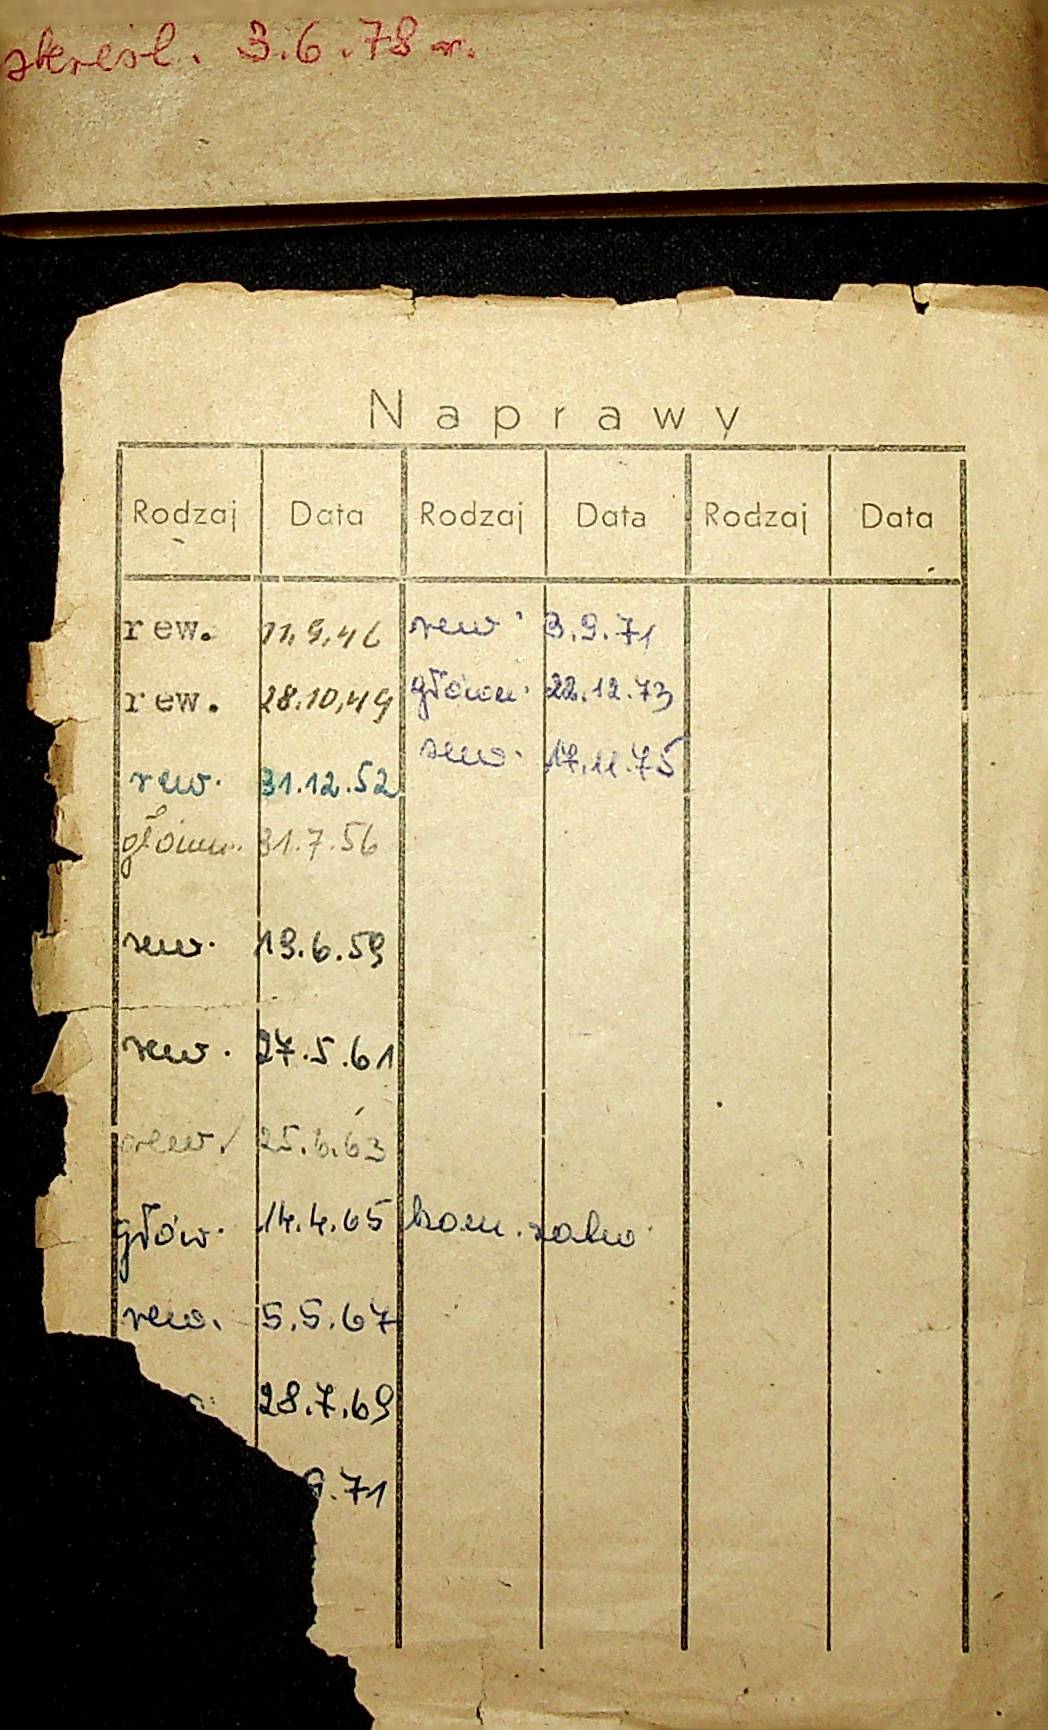 skreśl. 3.6.78 r.
Naprawy
Rodzaj Data Rodzaj Data Rodzaj Data
rew. 11.9.46 rew. 3.9.71
rew. 28.10.49 główn. 22.12.73
rew. 31.12.52 rew. 17.11.75
główn. 31.7.56
rew. 19.6.59
rew. 27.5.61
rew. 25.6.63
głów. 14.4.65
rew. 5.5.67
28.7.69
9.71